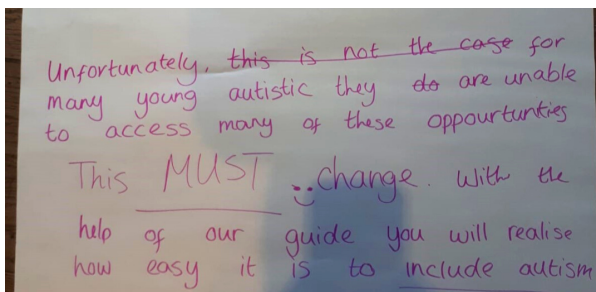 Unfortunately, this is not the case for
many young autistic they do are unable
to access many of these oppourtunties
This MUST change. With the
help of our guide you will realise
how easy it is to include autism